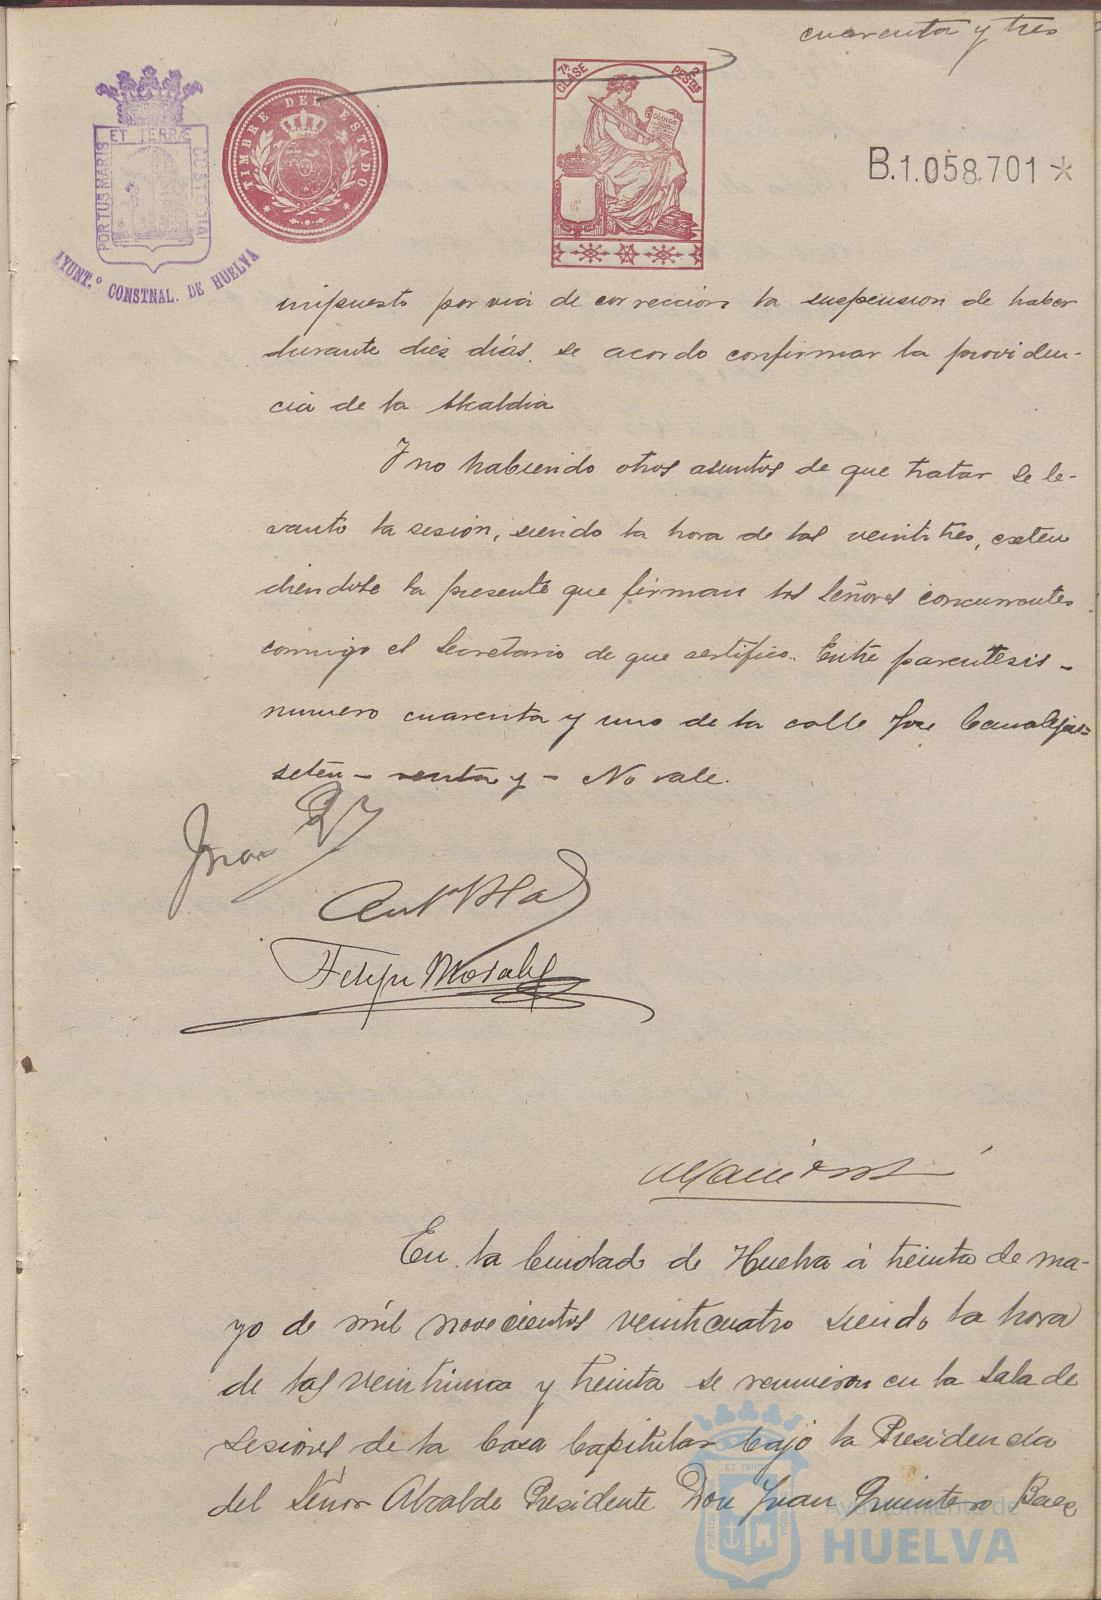 cuarenta y tres
ET TERRÆ
PORTUS MARIS
CUSTODIA
AYUNT.º CONSTNAL. DE HUELVA
TIMBRE DEL ESTADO
7ª CLASE
2 PESETAS
CÓDIGO
B.1.058.701*
impuesto por via de correccion la suspension de haber
durante diez días, se acordo confirmar la providen-
cia de la Alcaldia
Y no habiendo otros asuntos de que tratar se le-
vanto la sesión, siendo la hora de las veintitres, exten
diendose la presente que firman los Señores concurrentes
conmigo el Secretario de que certifico. Entre parentesis -
numero cuarenta y uno de la calle Jose Canalejas=
seten - venta y - No vale.
Juan
Antº
Felipe Morales
En la Ciudad de Huelva á treinta de ma-
yo de mil novecientos veinticuatro siendo la hora
de las veintiuna y treinta se reunieron en la Sala de
Sesiones de la Casa Capitular bajo la Presidencia
del Señor Alcalde Presidente Don Juan Quintero Baez
Ayuntamiento de
HUELVA